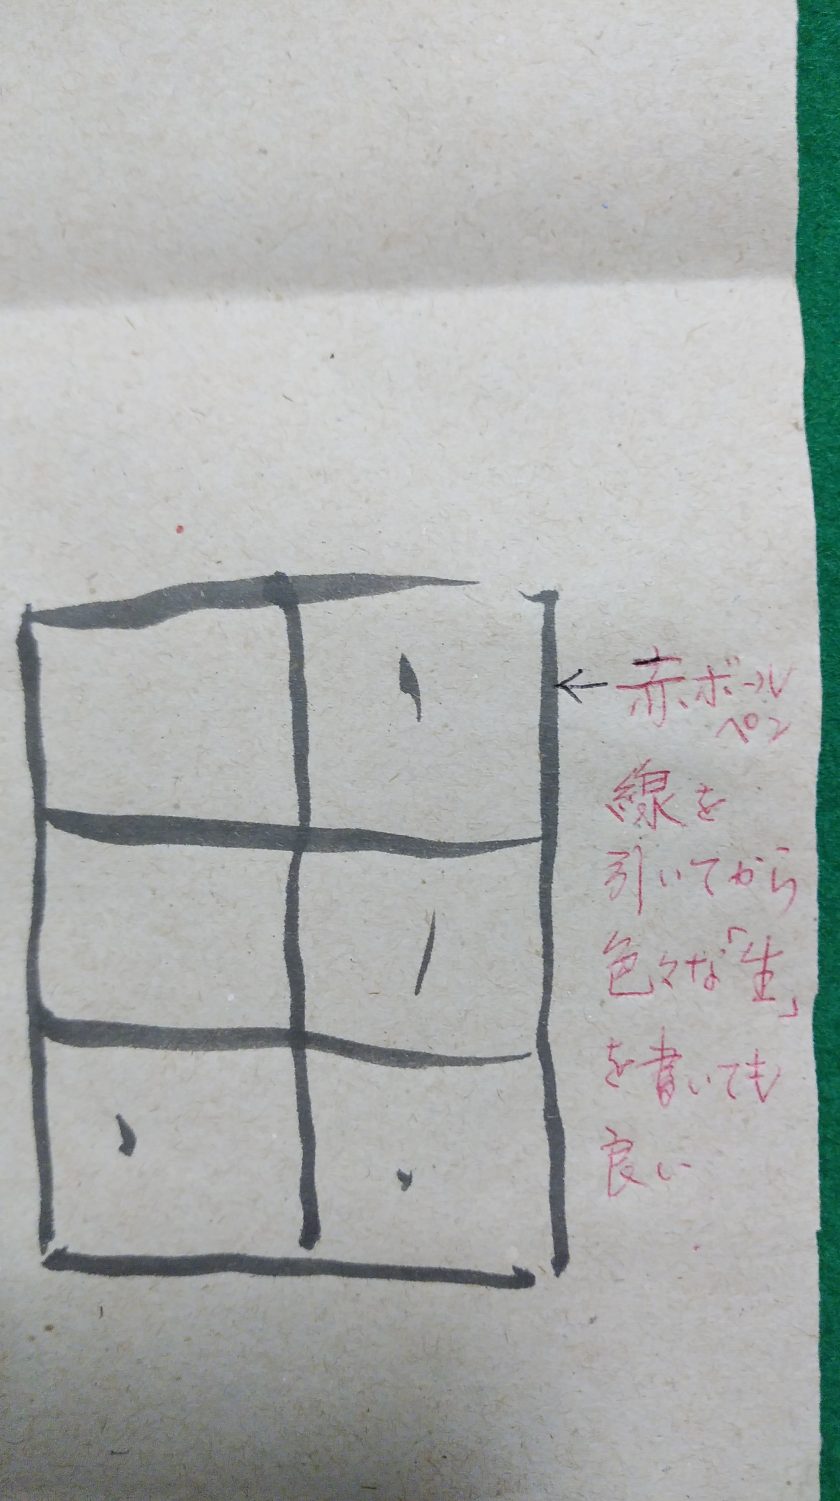 ←赤ボール
ペン
線を
引いてから
色々な「生」
を書いても
良い